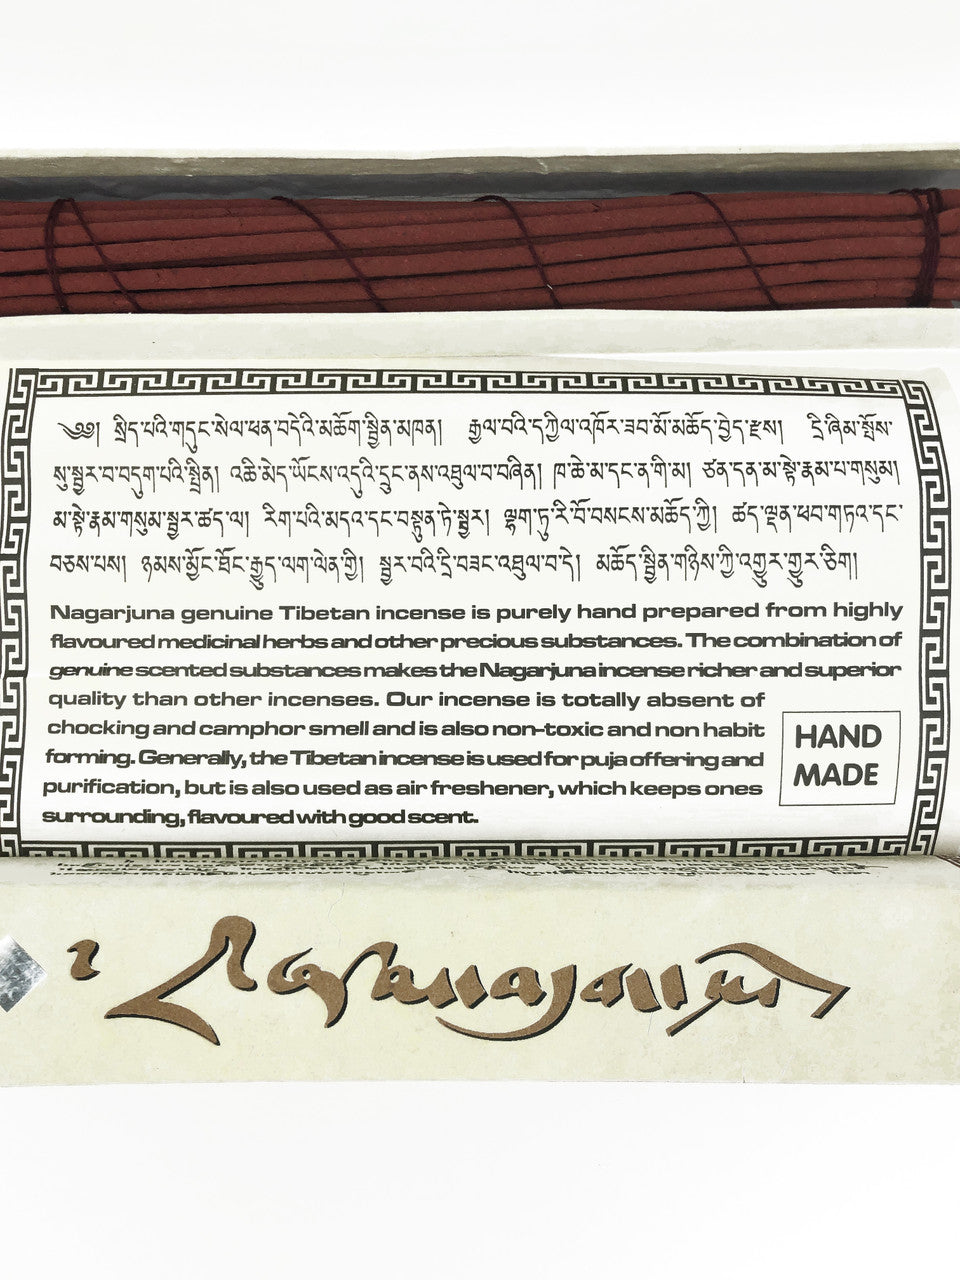 ༄༅། སྲིད་པའི་གདུང་སེལ་ཕན་བདེའི་མཆོག་སྦྱིན་མཁན། རྒྱལ་བའི་དཀྱིལ་འཁོར་ཟབ་མོ་མཆོད་བྱེད་རྫས། དྲི་ཞིམ་སྤོས་
སུ་སྦྱར་བ་བདུག་པའི་སྤྲིན། འཆི་མེད་ཡོངས་འདུའི་དྲུང་ནས་འཐུལ་བ་བཞིན། ཁ་ཆེ་མ་དང་ན་གི་མ། ཙན་དན་མ་སྟེ་རྣམ་པ་གསུམ།
མ་སྟེ་རྣམ་གསུམ་སྦྱར་ཚད་ལ། རིག་པའི་མདའ་དང་བསྟུན་ཏེ་སྦྱར། ལྷག་ཏུ་རི་བོ་བསངས་མཆོད་ཀྱི། ཚད་ལྡན་ཕབ་གཏའ་དང་
བཅས་པས། ཉམས་མྱོང་ཐོང་རྒྱུད་ལག་ལེན་གྱི། སྦྱར་བའི་དྲི་བཟང་འཐུལ་བ་དེ། མཆོད་སྦྱིན་གཉིས་ཀྱི་འགྱུར་གྱུར་ཅིག།
Nagarjuna genuine Tibetan incense is purely hand prepared from highly
flavoured medicinal herbs and other precious substances. The combination of
genuine scented substances makes the Nagarjuna incense richer and superior
quality than other incenses. Our incense is totally absent of
chocking and camphor smell and is also non-toxic and non habit
forming. Generally, the Tibetan incense is used for puja offering and
purification, but is also used as air freshener, which keeps ones
surrounding, flavoured with good scent.
HAND
MADE